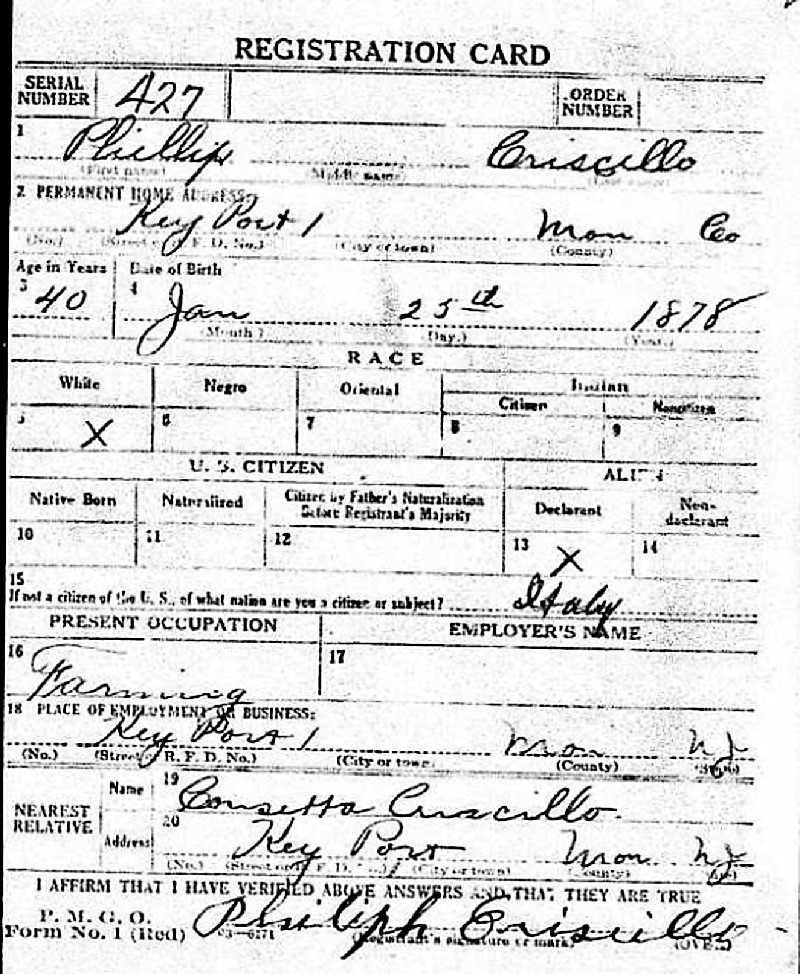 REGISTRATION CARD
SERIAL NUMBER 427 ORDER NUMBER
1 Phillip Criscillo
(First name) (Middle name) (Last name)
2 PERMANENT HOME ADDRESS:
Key Port 1 Mon Co
(No.) (Street or R. F. D. No.) (City or town) (County)
Age in Years Date of Birth
3 40 4 Jan 25th 1878
(Month) (Day.) (Year.)
RACE
White Negro Oriental Indian
Citizen Noncitizen
5 X 6 7 8 9
U. S. CITIZEN ALIEN
Native Born Naturalized Citizen by Father's Naturalization Before Registrant's Majority Declarant Non-declarant
10 11 12 13 X 14
15
If not a citizen of the U. S., of what nation are you a citizen or subject? Italy
PRESENT OCCUPATION EMPLOYER'S NAME
16 Farming 17
18 PLACE OF EMPLOYMENT OR BUSINESS:
Key Port 1 Mon NJ
(No.) (Street or R. F. D. No.) (City or town) (County) (State)
NEAREST RELATIVE
Name 19 Consetta Criscillo
Address 20 Key Port Mon NJ
(No.) (Street or R. F. D. No.) (City or town) (County)
I AFFIRM THAT I HAVE VERIFIED ABOVE ANSWERS AND THAT THEY ARE TRUE
P. M. G. O.
Form No. 1 (Red) 03-6171 Criscillo
(Registrant's signature or mark) (OVER)